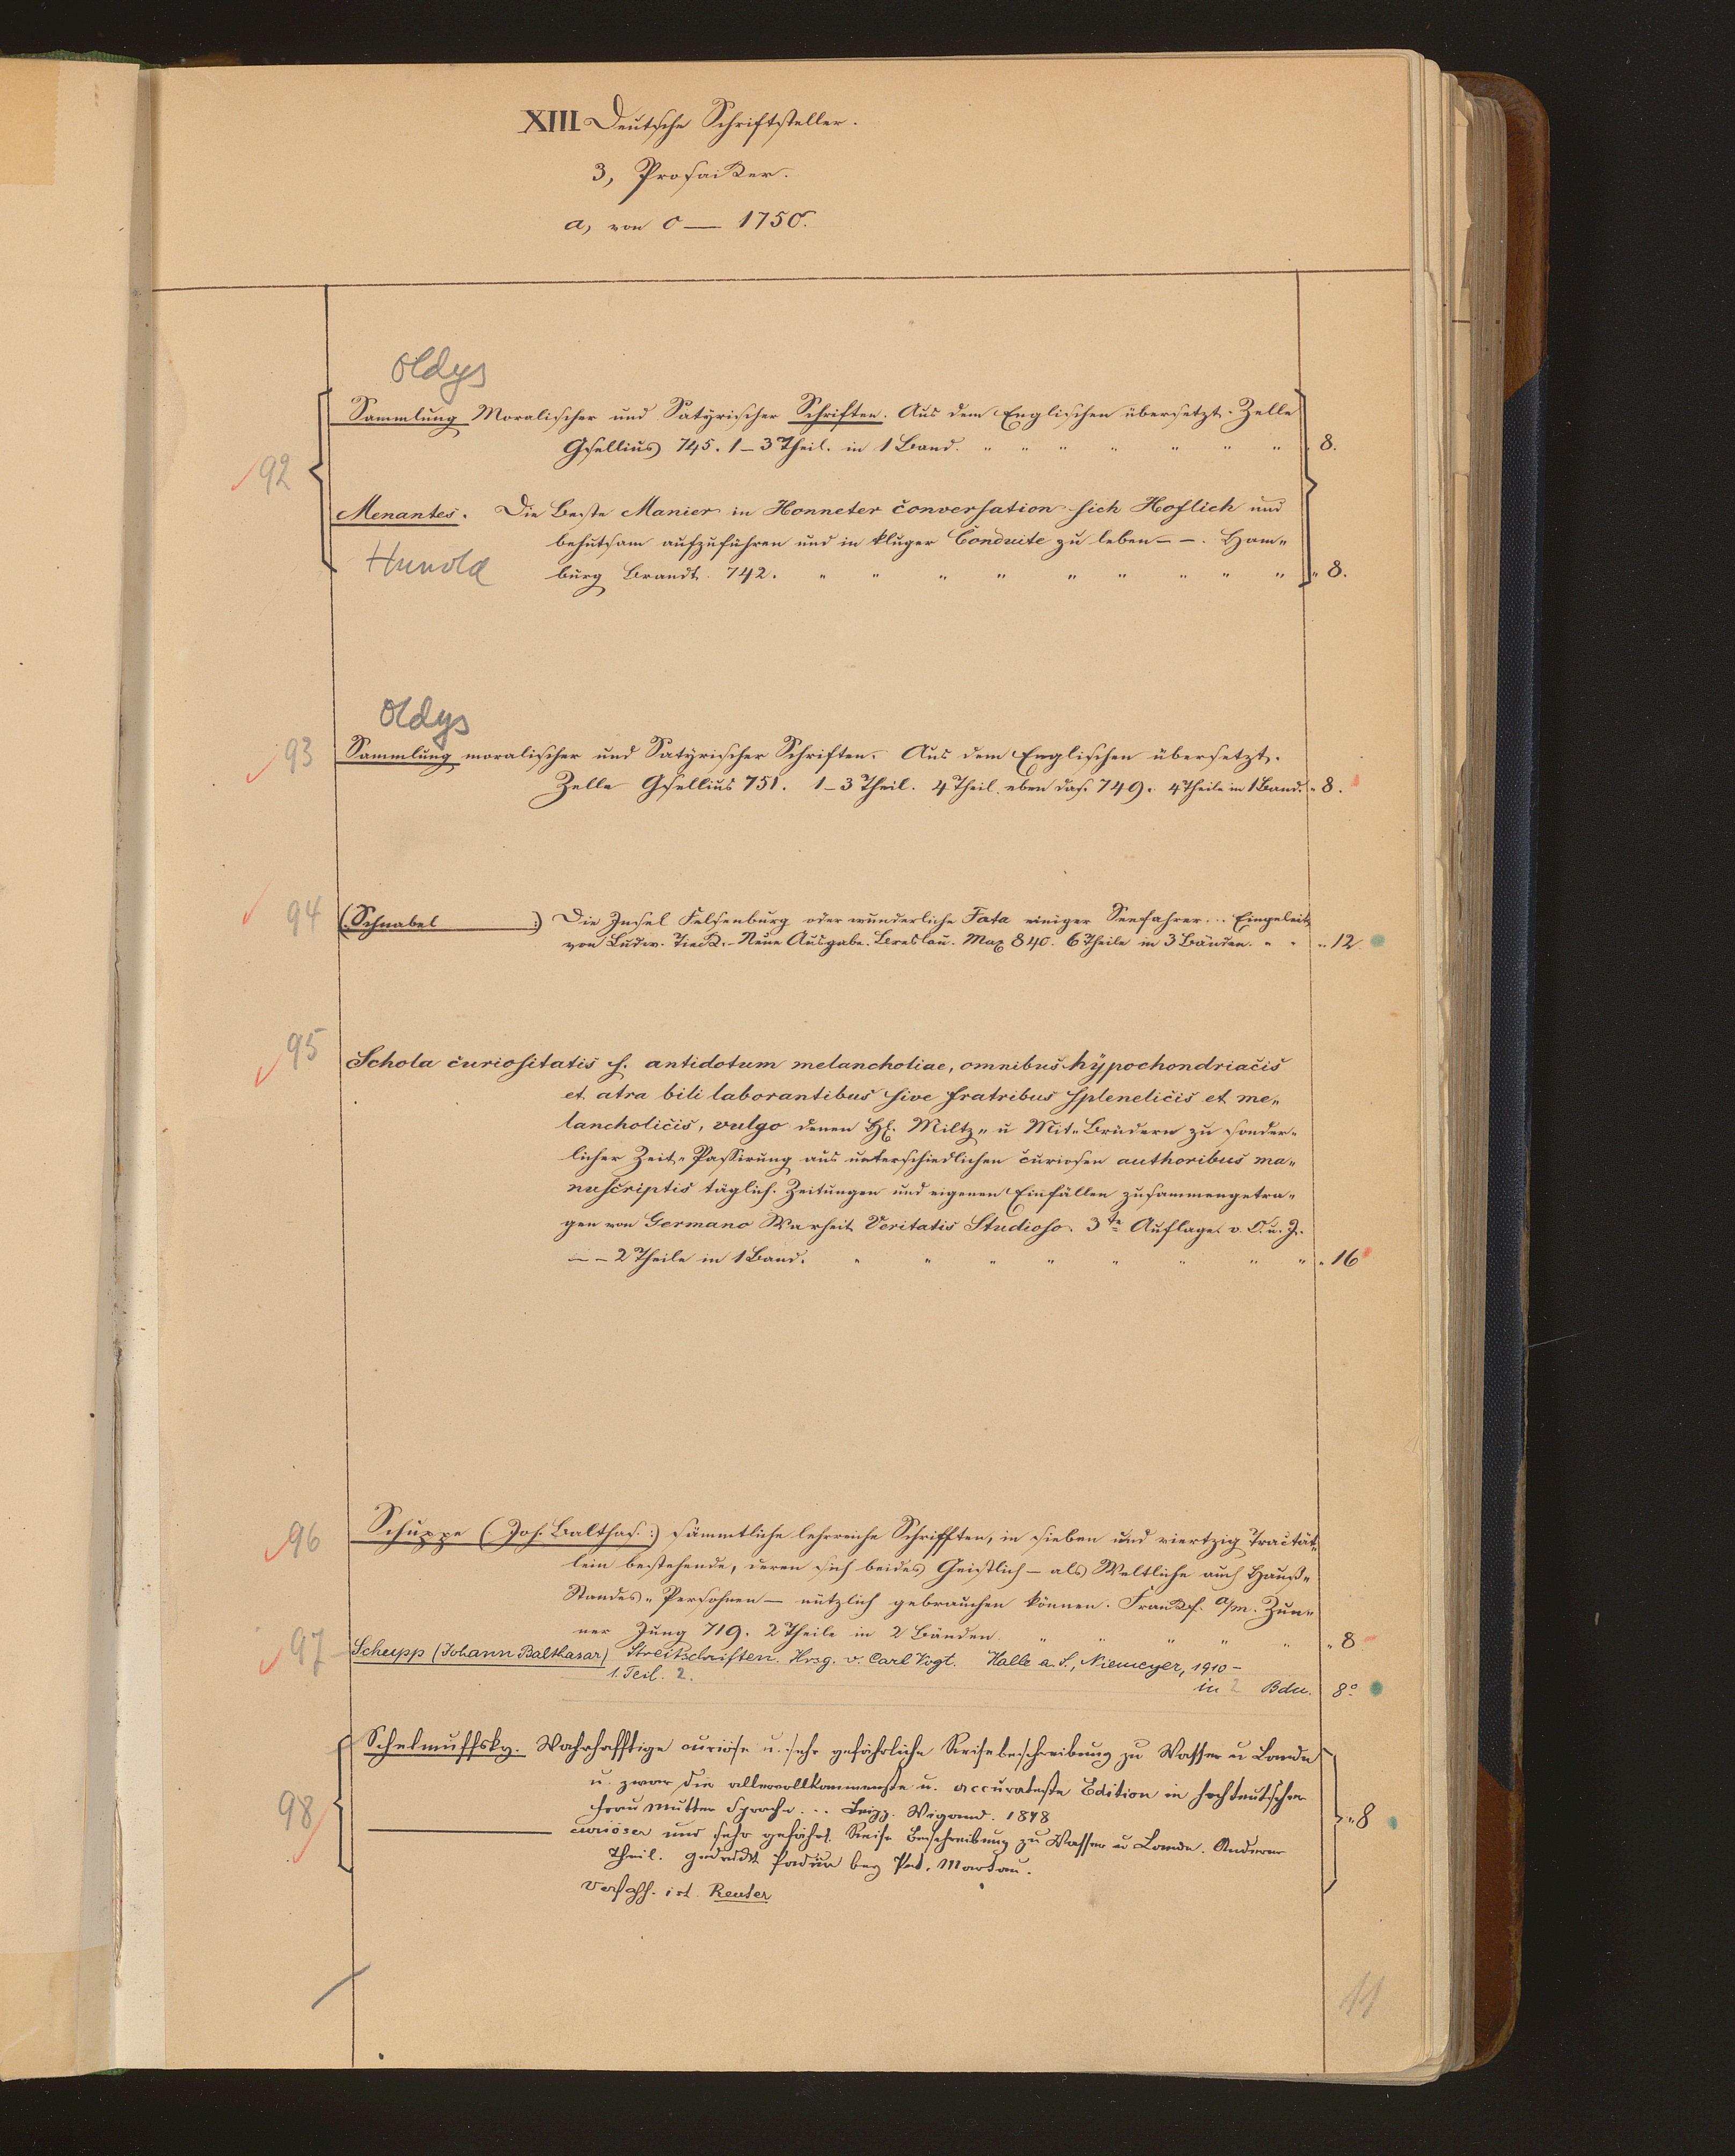 XIII Deutsche Schriftsteller.
3, Prosaiker.
a, von 0 — 1750.
Oldys
Sammlung Moralischer und Satyrischer Schriften. Aus dem Englischen übersetzt. Zelle
Gsellius 745. 1–3 Theil. in 1 Band. " " " " " " " 8.
92
Menantes. Die Beste Manier in Honneter conversation sich Hoflich und
behutsam aufzuführen und in kluger Conduite zu leben – –. Ham„
Hunold
burg Brandt. 742. " " " " " " " " " " 8.
Oldys
93 Sammlung moralischer und Satyrischer Schriften. Aus dem Englischen übersetzt.
Zelle Gsellius 751. 1–3 Theil. 4 Theil. eben das. 749. 4 Theile in 1 Band. " 8.
94 (Schnabel :) Die Insel Felsenburg oder wunderliche Fata einiger Seefahrer... Eingeleit.
von Ludw. Tieck. – Neue Ausgabe. Breslau. Max 840. 6 Theile in 3 Bänden. " " " 12.
95 Schola curiositatis s. antidotum melancholiae, omnibus hÿpochondriacis
et atra bili laborantibus sive fratribus spleneticis et me„
lancholicis, vulgo denen HE. Miltz„ u Mit„ Brüdern zu sonder„
licher Zeit„ Passirung aus unterschiedlichen curiosen authoribus ma„
nuscriptis täglich. Zeitungen und eigenen Einfällen zusammengetra„
gen von Germano Warheit Veritatis Studioso. 3te Auflage. v. O. u. J.
– – 2 Theile in 1 Band. " " " " " " " " " 16
96 Schuppe (Joh. Balthas:) sämmtliche lehrreiche Schrifften, in sieben und viertzig Tractät„
lein bestehende, deren sich beides Geistlich – als Weltliche auch Hauß„
Standes„ Persohnen – nützlich gebrauchen können. Frankf. a/m. Zun„
ner Jung 719. 2 Theile in 2 Bänden. " " " " " " 8
97 Schupp (Johann Balthasar) Streitschriften. Hrsg. v. Carl Vogt. Halle a. S., Niemeyer, 1910 –
1. Teil. 2. in 2 Bdn. 8°
Schelmuffsky. Wahrhafftige curiöse u. sehr gefährliche Reisebeschreibung zu Wasser u Lande
u. zwar die allervollkommenste u. accurateste Edition in hochteutscher
Frau Mutter Sprache... Leipz. Wigand. 1848
98 " 8
——— curiöser und sehr gefährl. Reise Beschreibung zu Wasser u Lande. Anderer
Theil. gedruckt Padua bey Pet. Martau.
Verfass. ist Reuter
11